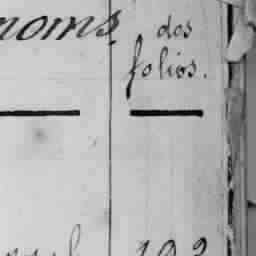 noms
dos
folios.
192